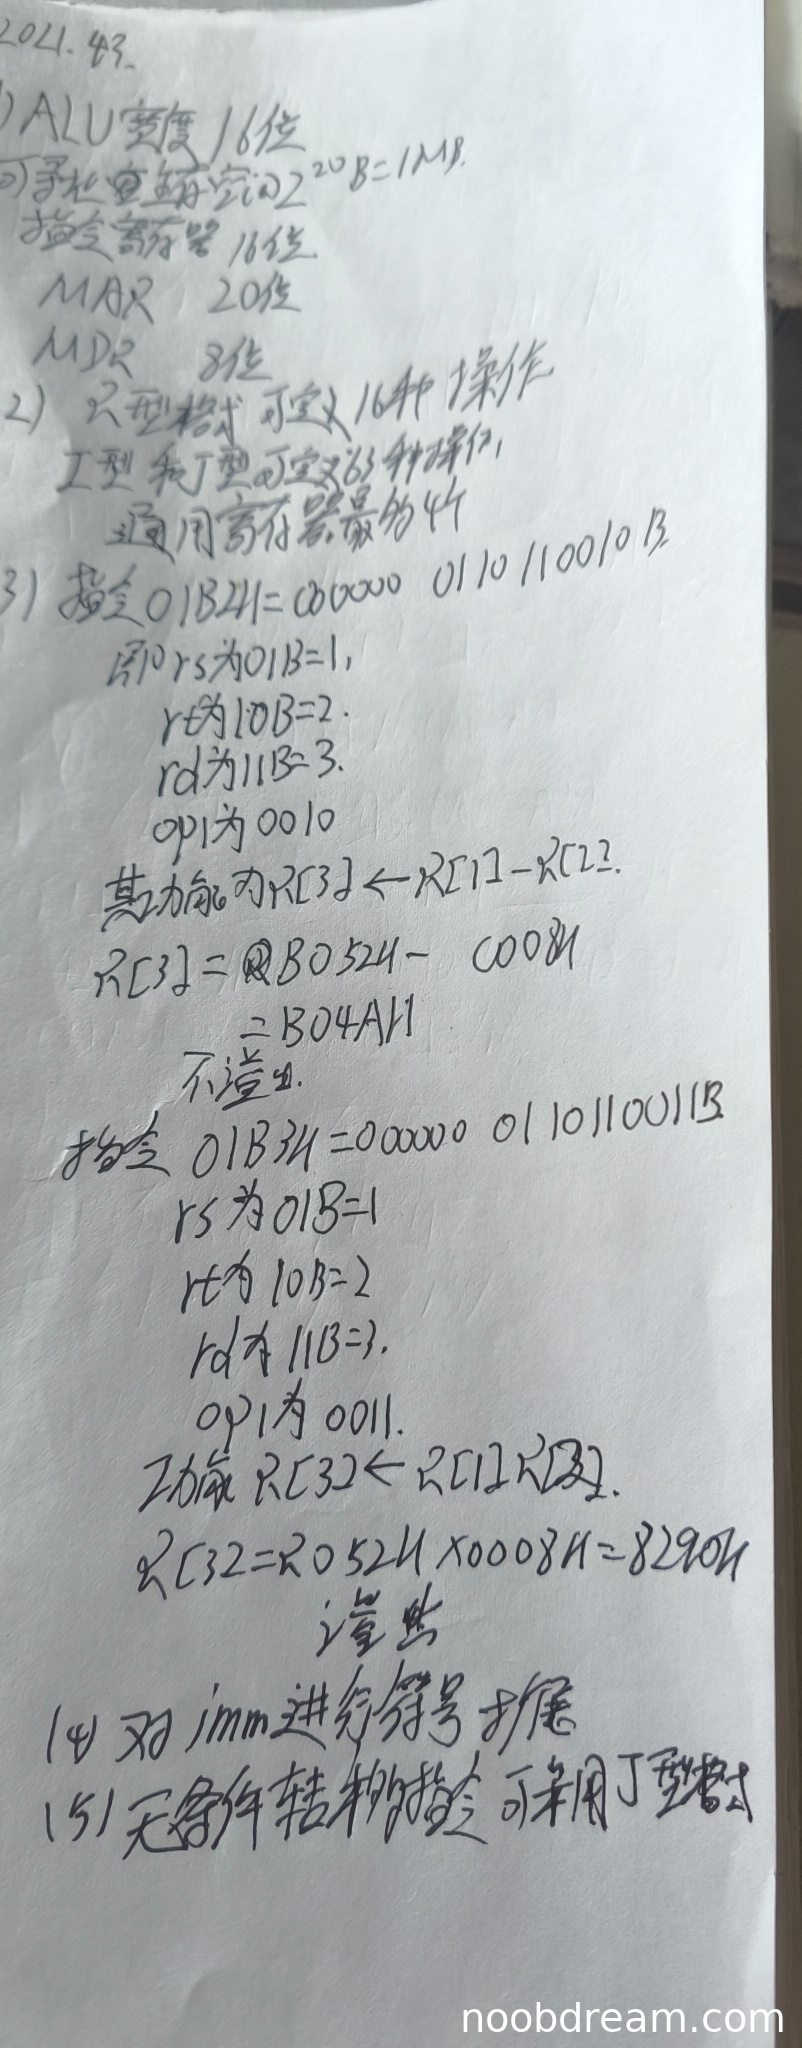 2021.43.
1) ALU宽度 16位
可寻址主存空间2^20B=1MB.
指令寄存器 16位.
MAR 20位
MDR 8位
2) R型格式可定义16种 操作
I型和J型可定义63种操作,
通用寄存器最多4个
3) 指令01B2H=000000 0110110010B
即rs为01B=1,
rt为10B=2.
rd为11B=3.
op1为0010
其功能为R[3]←R[1]-R[2].
R[3]= B052H- C008H
=B04AH
不溢出.
指令 01B3H=000000 0110110011B
rs为01B=1
rt为10B=2
rd为11B=3.
op1为0011.
功能 R[3]←R[1]R[2].
R[3]=R052H×0008H=8290H
溢出
(4) 对imm进行符号扩展
(5) 无条件转移指令可采用J型格式
noobdream.com